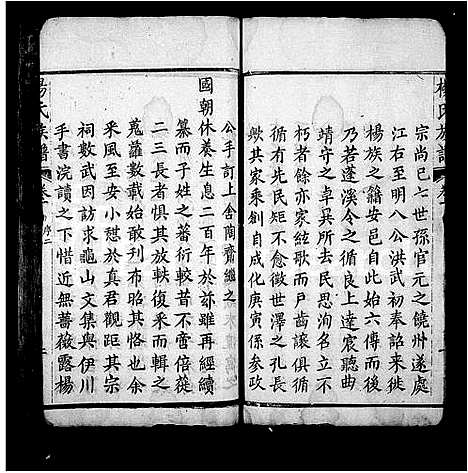 楊氏族譜
宗尚已七世孫官元之饒州遂處
江右至明八公洪武初奉詔來徙
楊族之籍安邑自此始六傳而後
乃若蓬溪令之循良上達宸聽曲
靖守之卓異所去民思洵名立不
朽者餘亦家絃歌而戶齒讓俱循
循有先民矩不愈徵世澤之孔長
歟其家乘創自成化庚寅係參政
公手訂上舍商齋繼之
國朝休養生息二百年於茲雖再經續
纂而子姓之蕃衍較昔不啻倍蓰
二三長者惧其放軼復釆而輯之
蒐羅數載始敢刋布昭其恪也余
釆風至安小憇於真君觀距其宗
祠數武因訪求龜山文集與伊川
手書浣讀之下惜近無薔薇露楊
楊氏族譜
卷
序二